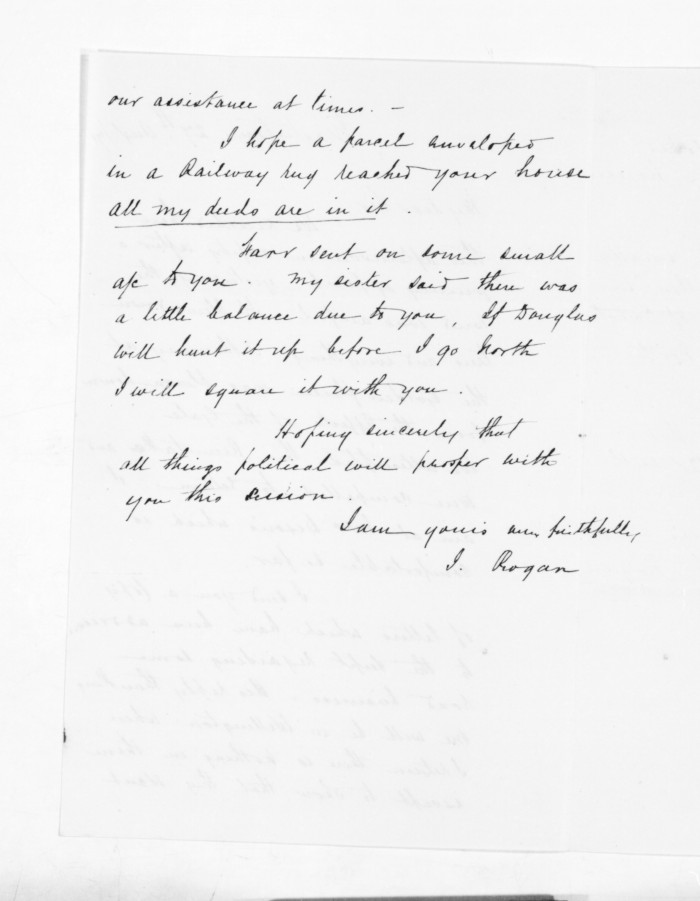 our assistance at times. —
I hope a parcel enveloped
in a Railway rug reached your house
all my deeds are in it.
Farr sent on some small
a/c to you. My sister said there was
a little balance due to you, If Douglas
will hunt it up before I go North
I will square it with you.
Hoping sincerely that
all things political will prosper with
you this session.
I am yours very faithfully,
J. Rogan